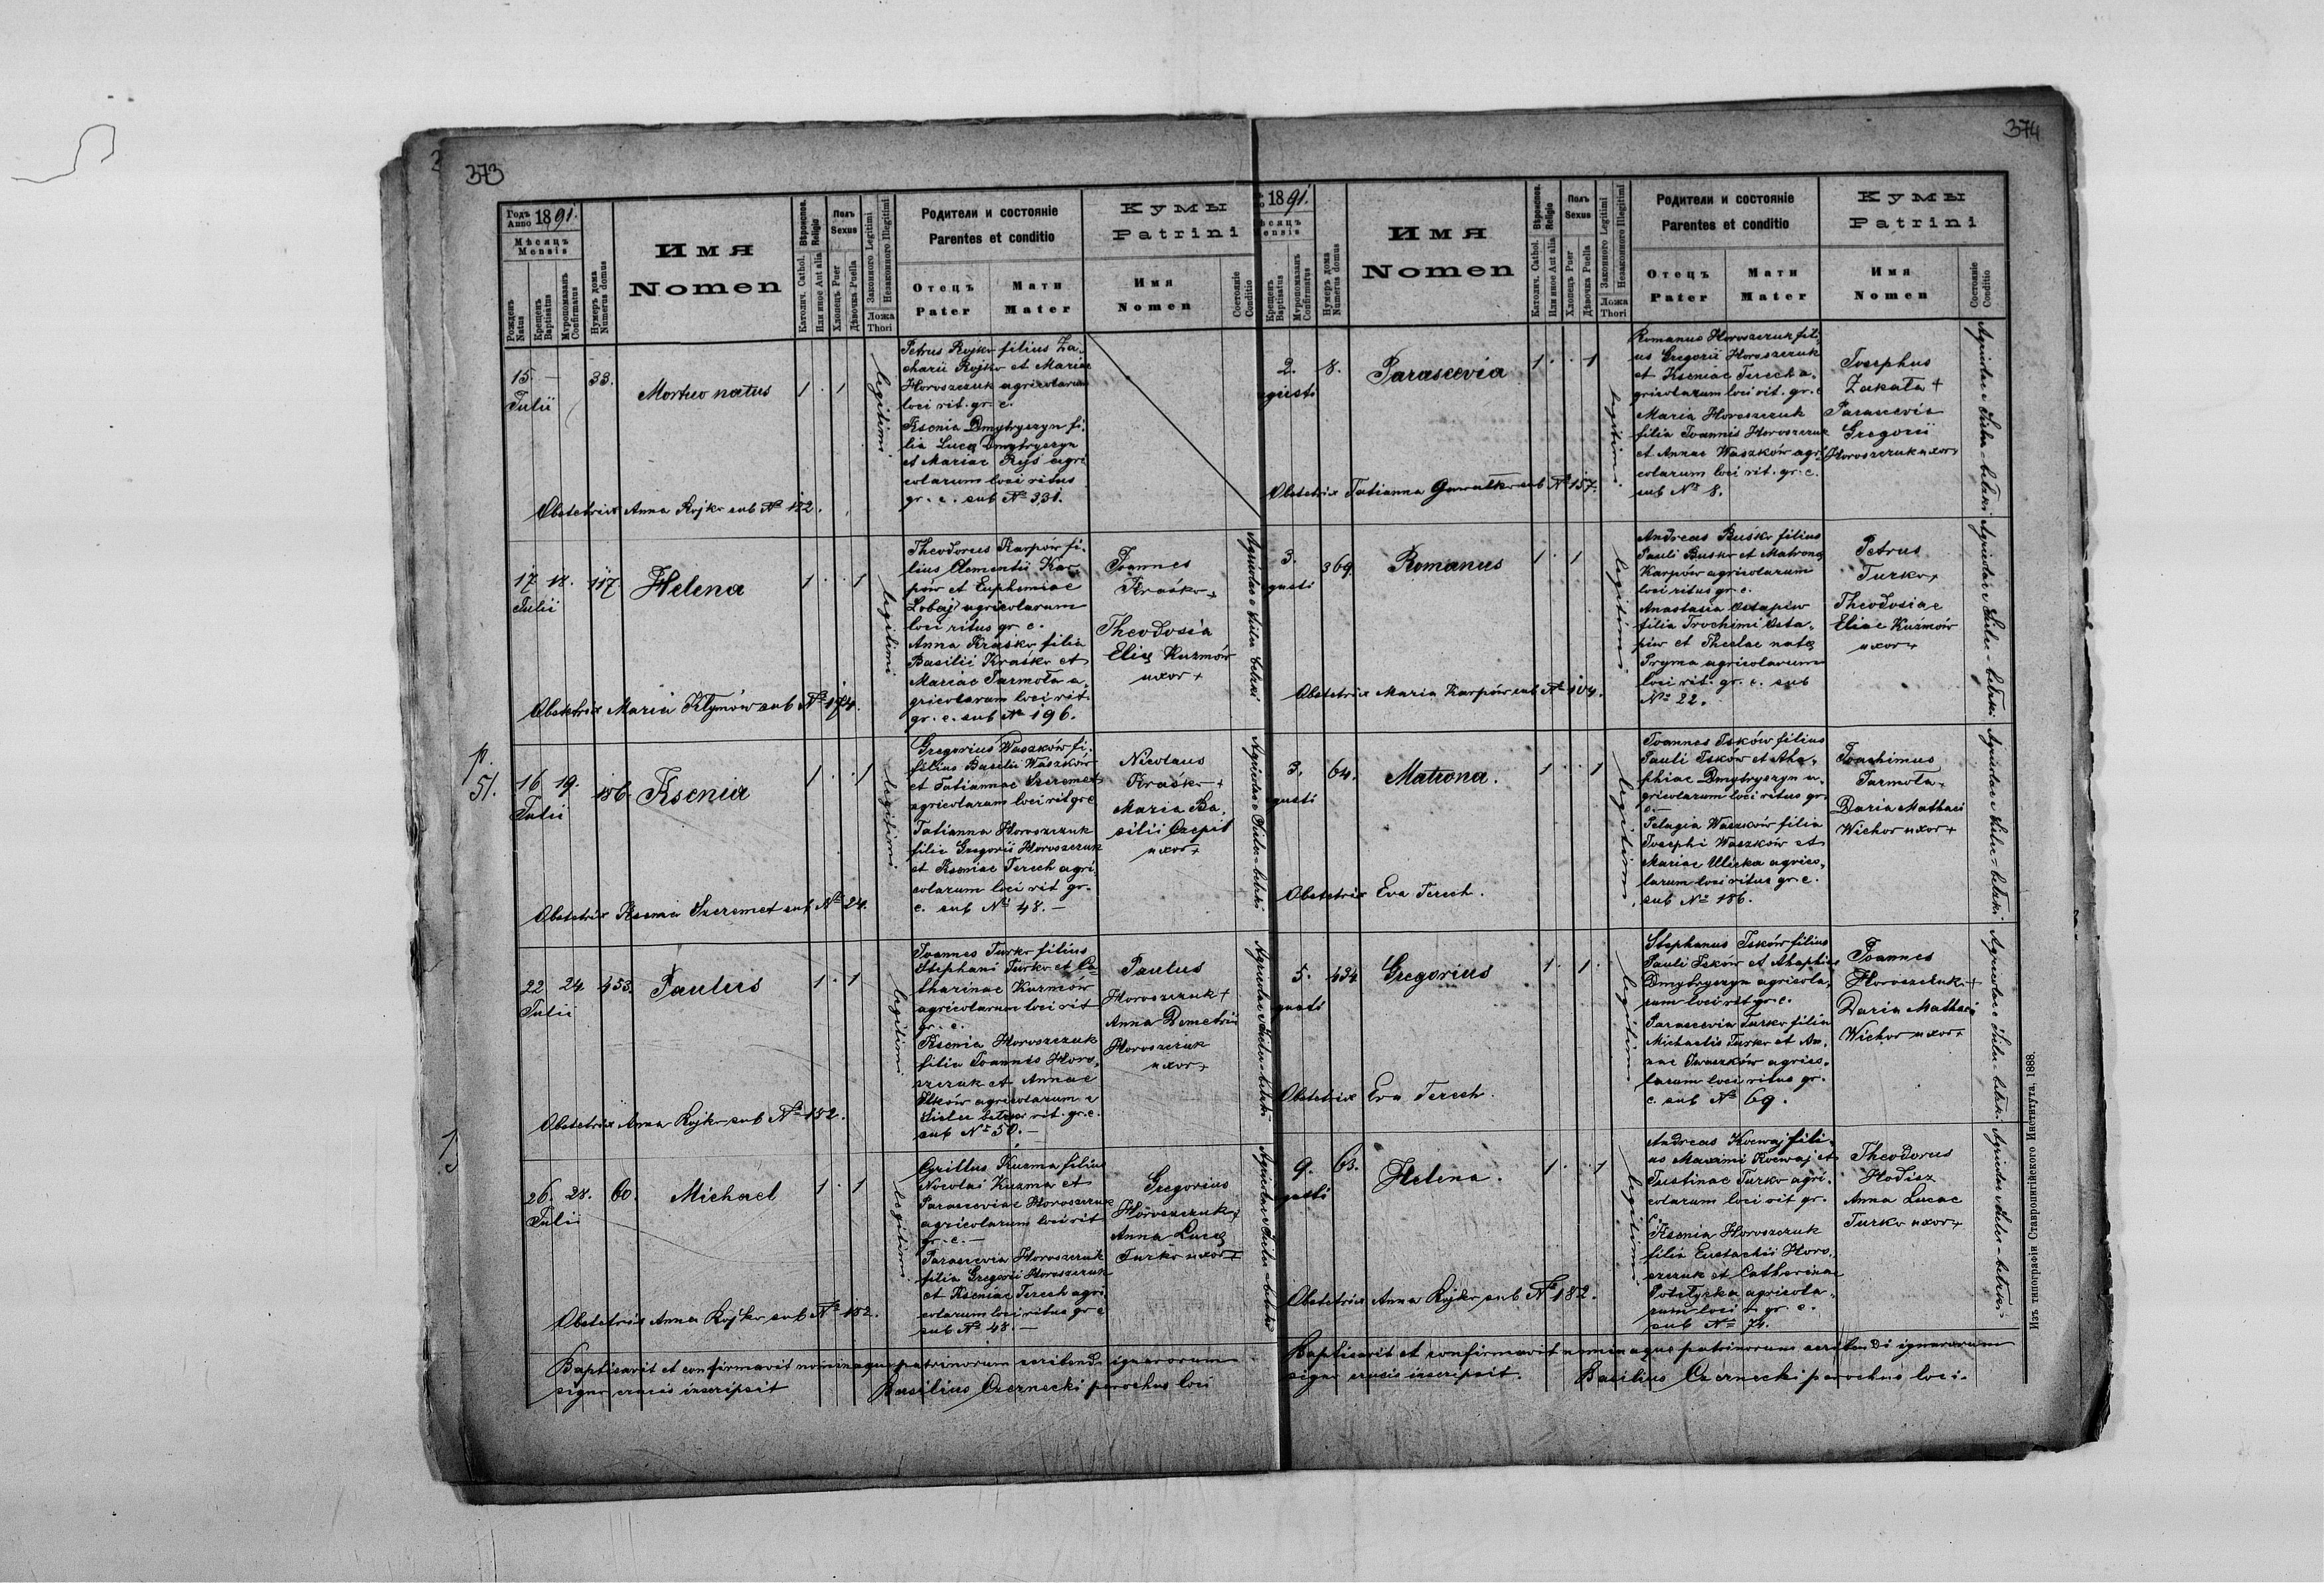 373
Годъ Anno 1891.
Мѣсяцъ
Mensis
Рожденъ Natus
Крещенъ Baptisatus
Мѵропомазанъ Confirmatus
Нумеръ дома Numerus domus
Имя
Nomen
Католич. Cathol. Вѣроиспов.
Или иное Aut alia Religio
Полъ
Sexus
Хлопецъ Puer
Дѣвочка Puella
Законного Legitimi
Незаконного Illegitimi
Ложа
Thori
Родители и состояніе
Parentes et conditio
Отецъ Мати
Pater Mater
Кумы
Patrini
Имя
Nomen
Состояніе
Conditio
15. — 33. Mortuo natus 1 · 1
Julii
legitimi
Petrus Rojko filius Za-
charii Rojko et Mariae
Horoszczuk agricolarum
loci rit. gr. c.
Ksenia Dmytryszyn fi-
lia Lucae Dmytryszyn
et Mariae Ryś agri
colarum loci ritus
gr. c. sub No 331.
Obstetrix Anna Rojko sub No 152.
17 18. 117. Helena 1 · · 1
Julii
legitimi
Theodorus Karpów fi-
lius Clementii Kar
pów et Euphemiae
Lobaj agricolarum
loci ritus gr. c.
Anna Kraśko filia
Basilii Kraśko et
Mariae Jarmoła a-
gricolarum loci rit.
gr. c. sub No 196.
Joannes
Kraśko +
Theodosia
Eliae Kuzmów
uxor +
Obstetrix Maria Klymów sub No 174.
p.
51.
16 19. 186. Ksenia 1 · · 1
Julii
legitimi
Gregorius Waszków fi-
filius Basilii Waszków
et Tatiannae Szeremet
agricolarum loci rit gr c
Tatianna Horoszczuk
filia Gregorii Horoszczuk
et Kseniae Terech agri
colarum loci rit gr.
c. sub No 48. —
Nicolaus
Kraśko +
Maria Ba-
silii Czepil
uxor +
Obstetrix Ksenia Szeremet sub No 24.
22 24 453. Paulus 1 · 1
Julii
legitimi
Joannes Turko filius
Stephani Turko et Ca-
tharinae Kuzmów
agricolarum loci rit
gr. c.
Ksenia Horoszczuk
filia Joannis Horo-
szczuk et Annae
Ilków agricolarum e
Sielec bełzkie rit. gr. c.
sub No 50. —
Paulus
Horoszczuk +
Anna Demetrii
Horoszczuk
uxor +
Obstetrix Anna Rojko sub No 152.
26. 28. 60. Michael 1 · 1
Julii
legitimi
Cyrillus Kuzma filius
Nicolai Kuzma et
Parasceviae Horoszczuk
agricolarum loci rit
gr. c. —
Parascevia Horoszczuk
filia Gregorii Horoszczuk
et Kseniae Terech agri
colarum loci ritus gr c
sub No 48. —
Gregorius
Horoszczuk +
Anna Lucae
Turko uxor +
Obstetrix Anna Rojko sub No 152.
Baptisavit et confirmavit nominaque patrinorum scribendi ignarorum
signo crucis inscripsit Basilius Czernecki parochus loci
374
1891.
Крещенъ Baptisatus
Мѵропомазанъ Confirmatus
Нумеръ дома Numerus domus
Имя
Nomen
Католич. Cathol. Вѣроиспов.
Или иное Aut alia Religio
Полъ
Sexus
Хлопецъ Puer
Дѣвочка Puella
Законного Legitimi
Незаконного Illegitimi
Ложа
Thori
Родители и состояніе
Parentes et conditio
Отецъ Мати
Pater Mater
Кумы
Patrini
Имя
Nomen
Состояніе
Conditio
2. 8. Parascevia 1 · · 1
gusti
legitimi
Romanus Horoszczuk fili
us Gregorii Horoszczuk
et Kseniae Terech a-
gricolarum loci rit. gr. c
Maria Horoszczuk
filia Joannis Horoszczuk
et Annae Waszków agri
colarum loci rit. gr. c.
sub No 8.
Josephus
Zakała +
Parascevia
Gregorii
Horoszczuk uxor +
Obstetrix Tatianna Gawalko sub No 157.
3. 369. Romanus 1 · 1
gusti
legitimi
Andreas Buśko filius
Pauli Busko et Matronae
Karpów agricolarum
loci ritus gr c.
Anastasia Ostapiw
filia Trochimi Osta-
piw et Theclae natae
Pryma agricolarum
loci rit. gr. c. sub
No 22.
Petrus
Turko +
Theodosiae
Eliae Kuźmów
uxor +
Obstetrix Maria Karpów sub No 104.
3. 64. Matrona. 1 · · 1
gusti
legitimi
Joannes Iśków filius
Pauli Isków et Aha-
phiae Dmytryszyn a-
gricolarum loci ritus gr.
c. —
Pelagia Waszków filia
Josephi Waszków et
Mariae Ulicka agrico-
larum loci ritus gr. c.
sub No 186.
Joachimus
Jarmoła +
Daria Mathaei
Wichor uxor +
Obstetrix Eva Terech.
5. 434 Gregorius 1 · 1
gusti
legitimi
Stephanus Isków filius
Pauli Isków et Ahaphiae
Dmytryszyn agricola-
rum loci rit gr. c.
Parascevia Turko filia
Michaelis Turko et An-
nae Iwaszków agrico-
larum loci ritus gr.
c. sub No 69.
Joannes
Horoszczuk +
Daria Mathaei
Wichor uxor +
Obstetrix Eva Terech.
9. 63. Helena. 1 · · 1
gusti
legitimi
Andreas Kocwaj fili-
us Maximi Kocwaj et
Justinae Turko agri-
colarum loci rit gr.
c.
Ksenia Horoszczuk
filia Eustachii Horo-
szczuk et Catharinae
Potetyzka agricola-
rum loci r. gr. c.
sub No 74.
Theodorus
Hodisz
Anna Lucae
Turko uxor +
Obstetrix Anna Rojko sub No 182.
Baptisavit et confirmavit nominaque patrinorum scribendi ignarorum
signo crucis inscripsit. Basilius Czernecki parochus loci.
Изъ типографіи Ставропигійского Института. 1888.